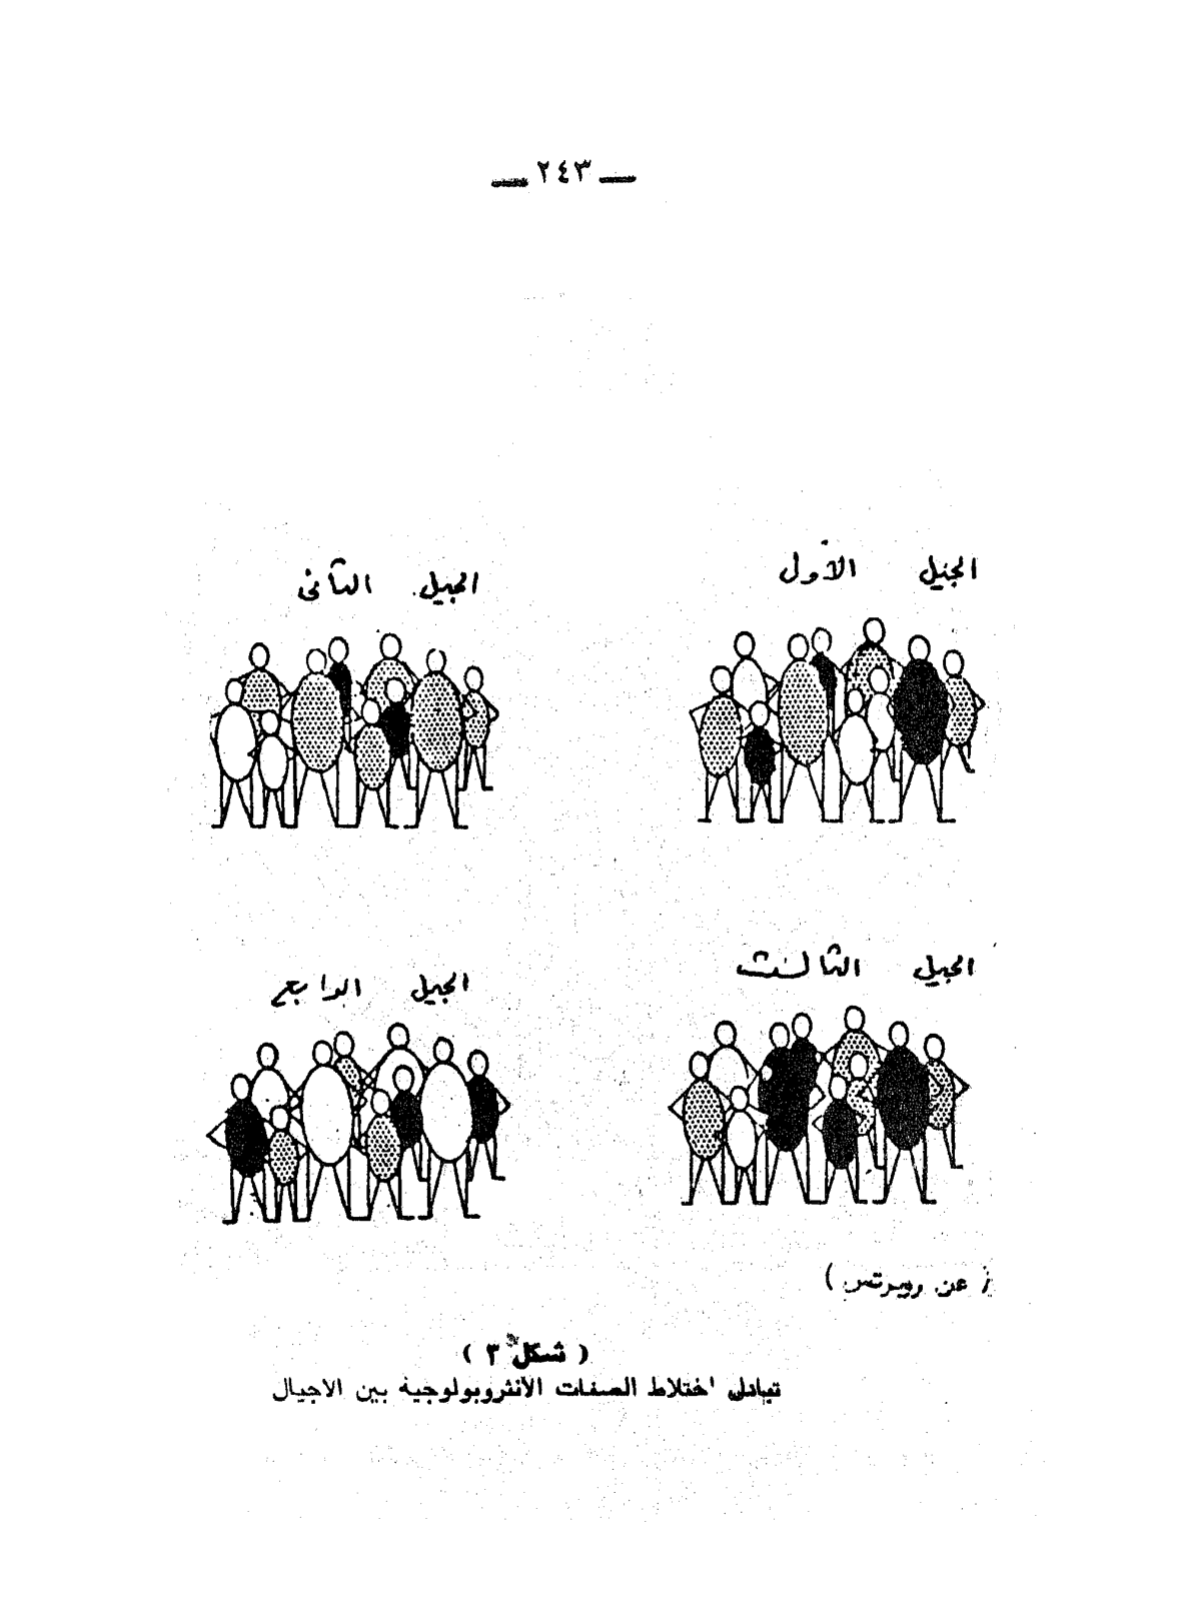 — ٢٤٣ —
الجيل الأول
الجيل الثانى
الجيل الثالث
الجيل الرابع
( عن روبرتس )
( شكل ٣ )
تبادل اختلاط الصفات الأنثروبولوجية بين الاجيال